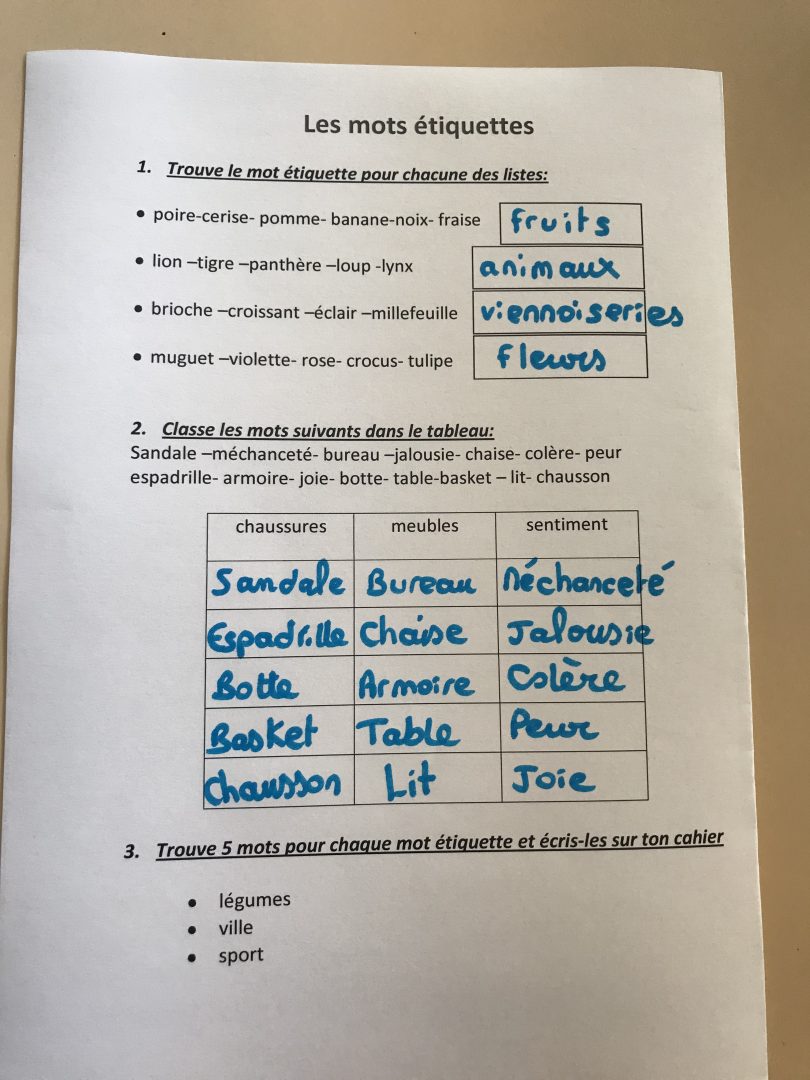 Les mots étiquettes
1. Trouve le mot étiquette pour chacune des listes:
• poire-cerise- pomme- banane-noix- fraise fruits
• lion –tigre –panthère –loup -lynx animaux
• brioche –croissant –éclair –millefeuille viennoiseries
• muguet –violette- rose- crocus- tulipe fleurs
2. Classe les mots suivants dans le tableau:
Sandale –méchanceté- bureau –jalousie- chaise- colère- peur
espadrille- armoire- joie- botte- table-basket – lit- chausson
chaussures meubles sentiment
Sandale Bureau Méchanceté
Espadrille Chaise Jalousie
Botte Armoire Colère
Basket Table Peur
Chausson Lit Joie
3. Trouve 5 mots pour chaque mot étiquette et écris-les sur ton cahier
• légumes
• ville
• sport